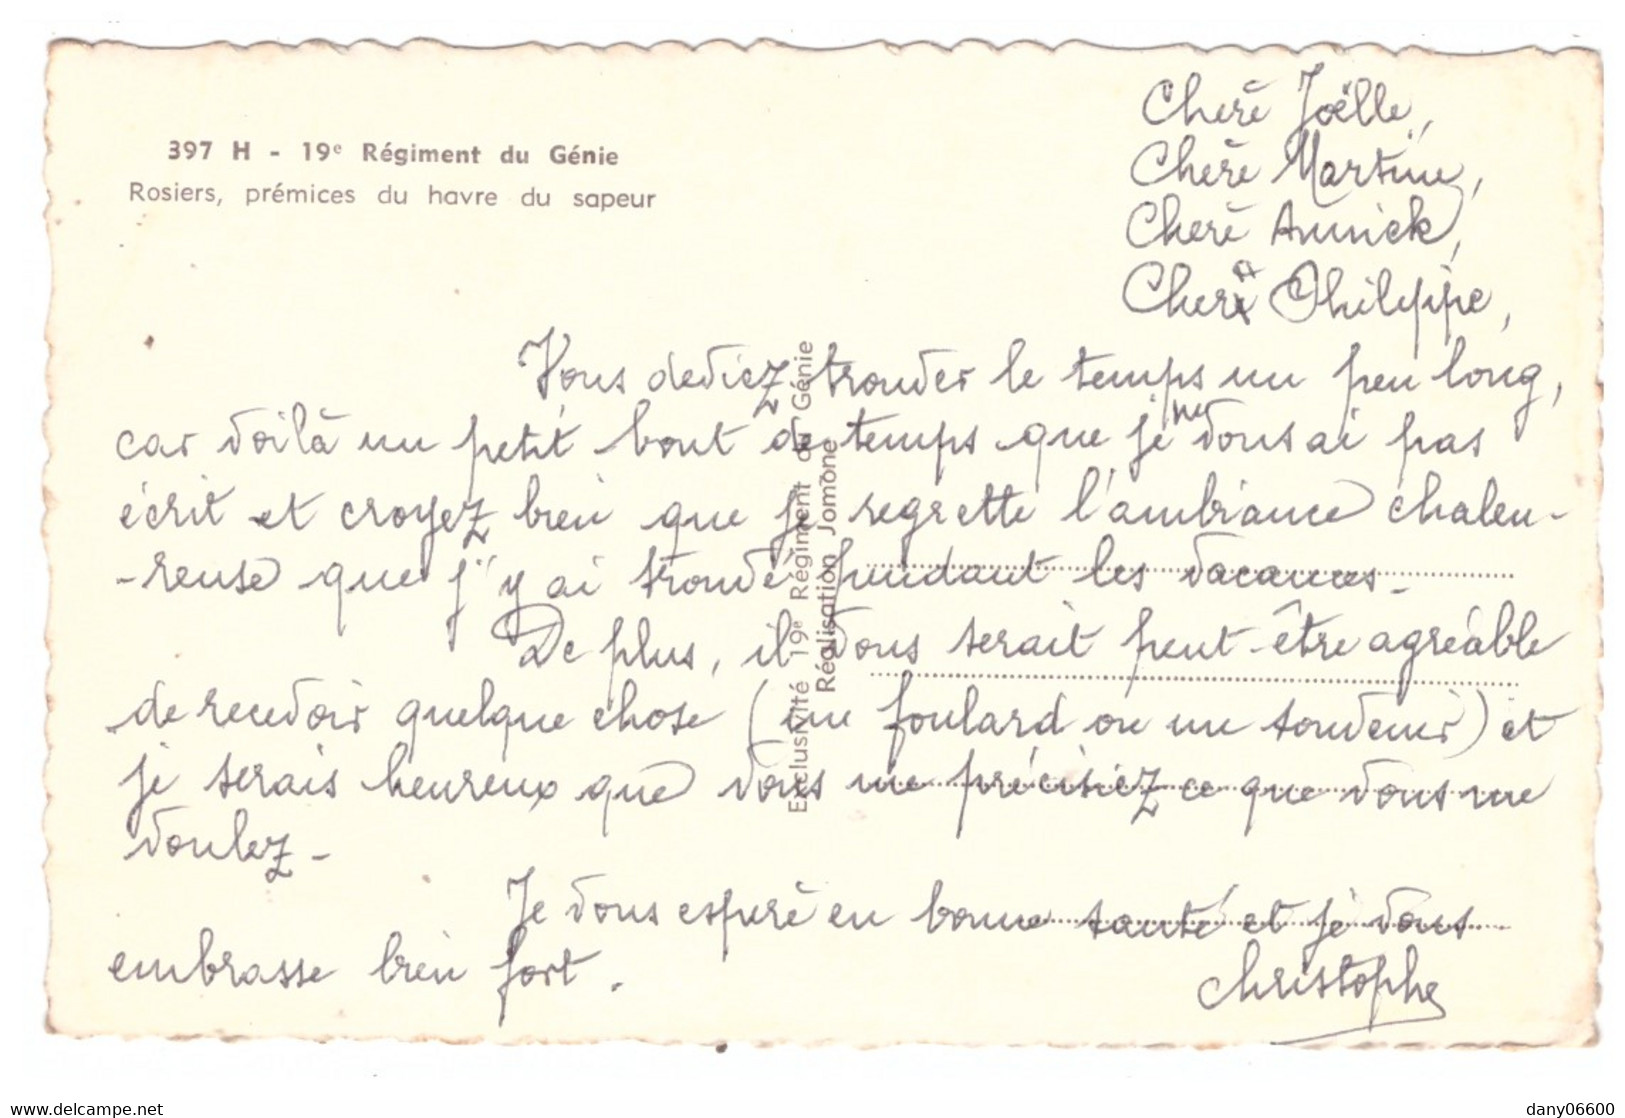 397 H - 19e Régiment du Génie
Rosiers, prémices du havre du sapeur
Chère Joëlle,
Chère Martine,
Chère Annick,
Cher Philippe,
Vous deviez trouver le temps un peu long,
car voilà un petit bout de temps que je ne vous ai pas
écrit et croyez bien que je regrette l'ambiance chaleu-
-reuse que j'y ai trouvé pendant les vacances.
De plus, il vous serait peut-être agréable
de recevoir quelque chose (un foulard ou un souvenir) et
je serais heureux que vous me précisiez ce que vous me
voulez -
Je vous espère en bonne santé et je vous
embrasse bien fort.
Christophe
Exclusivité 19e Régiment du Génie
Réalisation Jomone
www.delcampe.net
dany06600